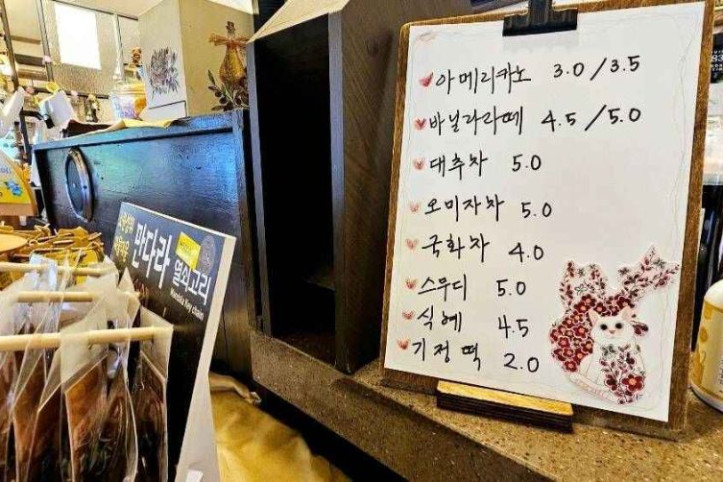 아메리카노 3.0/3.5
바닐라라떼 4.5/5.0
대추차 5.0
오미자차 5.0
국화차 4.0
스무디 5.0
식혜 4.5
기정떡 2.0
만다라
열쇠고리
Mandala Key chain